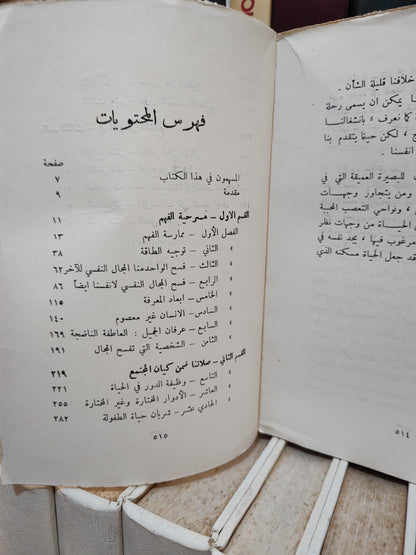 فهرس المحتويات
صفحة
المسهمون في هذا الكتاب ٧
مقدمة ٩
القسم الاول – مسرحية الفهم ١١
الفصل الأول – ممارسة الفهم ١٣
« الثاني – توجيه الطاقة ٣٨
« الثالث – فسح الواحد منا المجال النفسي للآخر ٦٢
« الرابع – فسح المجال النفسي لانفسنا ايضاً ٨٦
« الخامس – ابعاد المعرفة ١١٥
« السادس – الانسان غير معصوم ١٤٠
« السابع – عرفان الجميل : العاطفة الناضجة ١٦٩
« الثامن – الشخصية التي تفسح المجال ١٩١
القسم الثاني – صلاتنا ضمن كيان المجتمع ٢١٩
« التاسع – وظيفة الدور في الحياة ٢٢١
« العاشر – الأدوار المختارة وغير المختارة ٢٥٥
« الحادي عشر – شريان حياة الطفولة ٢٨٢
٥١٥
خلافنا قليلة الشأن .
ا يمكن ان يسمى رحلة
كما نعرف ، بانشغالنا
، لكن حينما يتقدم بنا
انفسنا .
للبصيرة العميقة التي في
ومن يتجاوز وجهات
، ونواحي التعصب المحببة
الحياة من وجهات نظر
مرغوب فيها ، يجد نفسه في
قد جعل الحياة مسكنه الذي
٥١٤